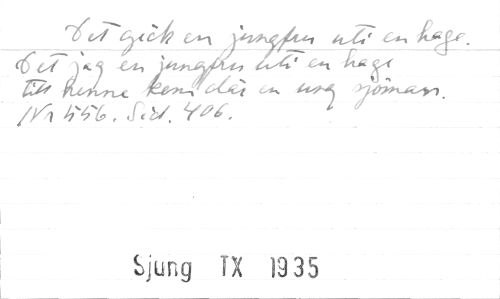 Det gick en jungfru uti en hage.
Det jag en jungfru uti en hage
till henne kom där en ung sjöman.
/Nr 556. Sid. 406.
Sjung TX 1935